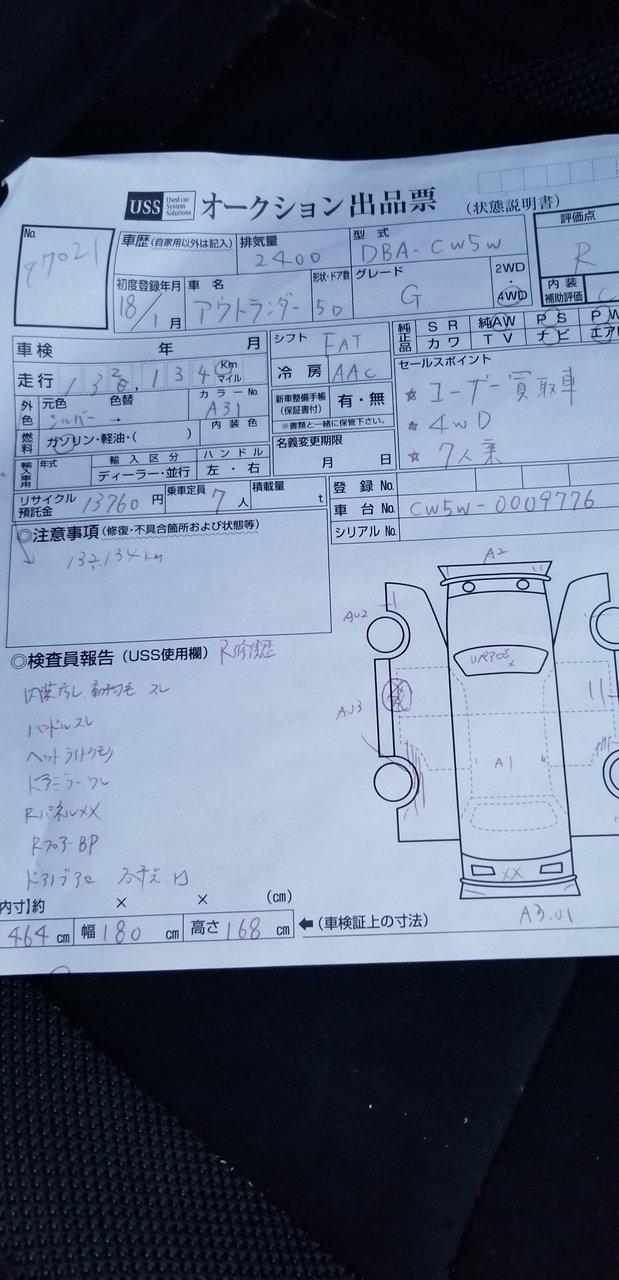 USS Used car System Solutions オークション出品票 (状態説明書)
No. 87021
車歴 (自家用以外は記入)
排気量 2400
型式 DBA-CW5W
評価点 R
初度登録年月 18/1月
車名 アウトランダー
形状・ドア数 5D
グレード G
2WD・4WD
内装補助評価 C
車検 年 月
シフト FAT
純正品 SR 純AW PS PW
カワ TV ナビ エアB
走行 km マイル
冷房 AAC
セールスポイント
外色 元色 シルバー → 色替
カラーNo. A31
内装色
新車整備手帳(保証書付) 有・無
※書類と一緒に保管下さい。
☆ ユーザー買取車
☆ 4WD
☆ 7人乗
燃料 ガソリン・軽油・( )
名義変更期限 月 日
輸入車用 年式 輸入区分 ディーラー・並行 ハンドル 左・右
リサイクル預託金 13760円
乗車定員 7人
積載量 t
登録No.
車台No. CW5W-0009776
シリアルNo.
◎注意事項 (修復・不具合箇所および状態等)
◎検査員報告 (USS使用欄) R修復歴
A2
AU2
AU3
A1
XX
A3.U1
ハンドルスレ
ヘッドライトクモリ
ドアミラーワレ
RパネルXX
RフロアーBP
内寸]約 × × (cm)
464cm 幅180cm 高さ168cm ←(車検証上の寸法)